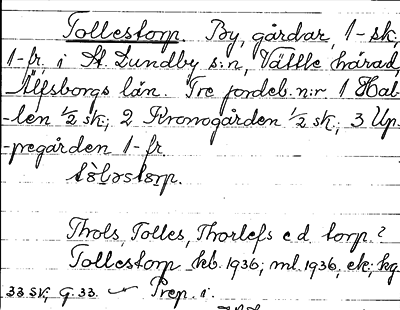 Tollestorp. By, gårdar, 1 - sk;
1 - fr. i St. Lundby s:n, Vättle härad,
Älfsborgs län. Tre jordeb. n:r 1 Hal-
-len ½ sk; 2 Kronogården ½ sk; 3 Up-
-pegården 1 - fr.
Thols, Tolles, Thorlefs e d. torp.?
Tollestorp kb. 1936; ml. 1936, ek; kg
33 sk, g. 33. Prep. i.